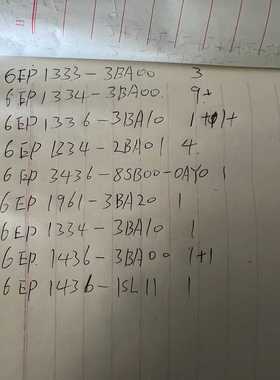 6EP 1333-3BA00 3
6EP 1334-3BA00. 9+
6EP 1336-3BA10 1+1+
6EP 1334-2BA01 4
6EP 3436-8SB00-0AY0 1
6EP 1961-3BA20 1
6EP 1334-3BA10 1
6EP. 1436-3BA00 1+1
6EP 1436-1SL11 1